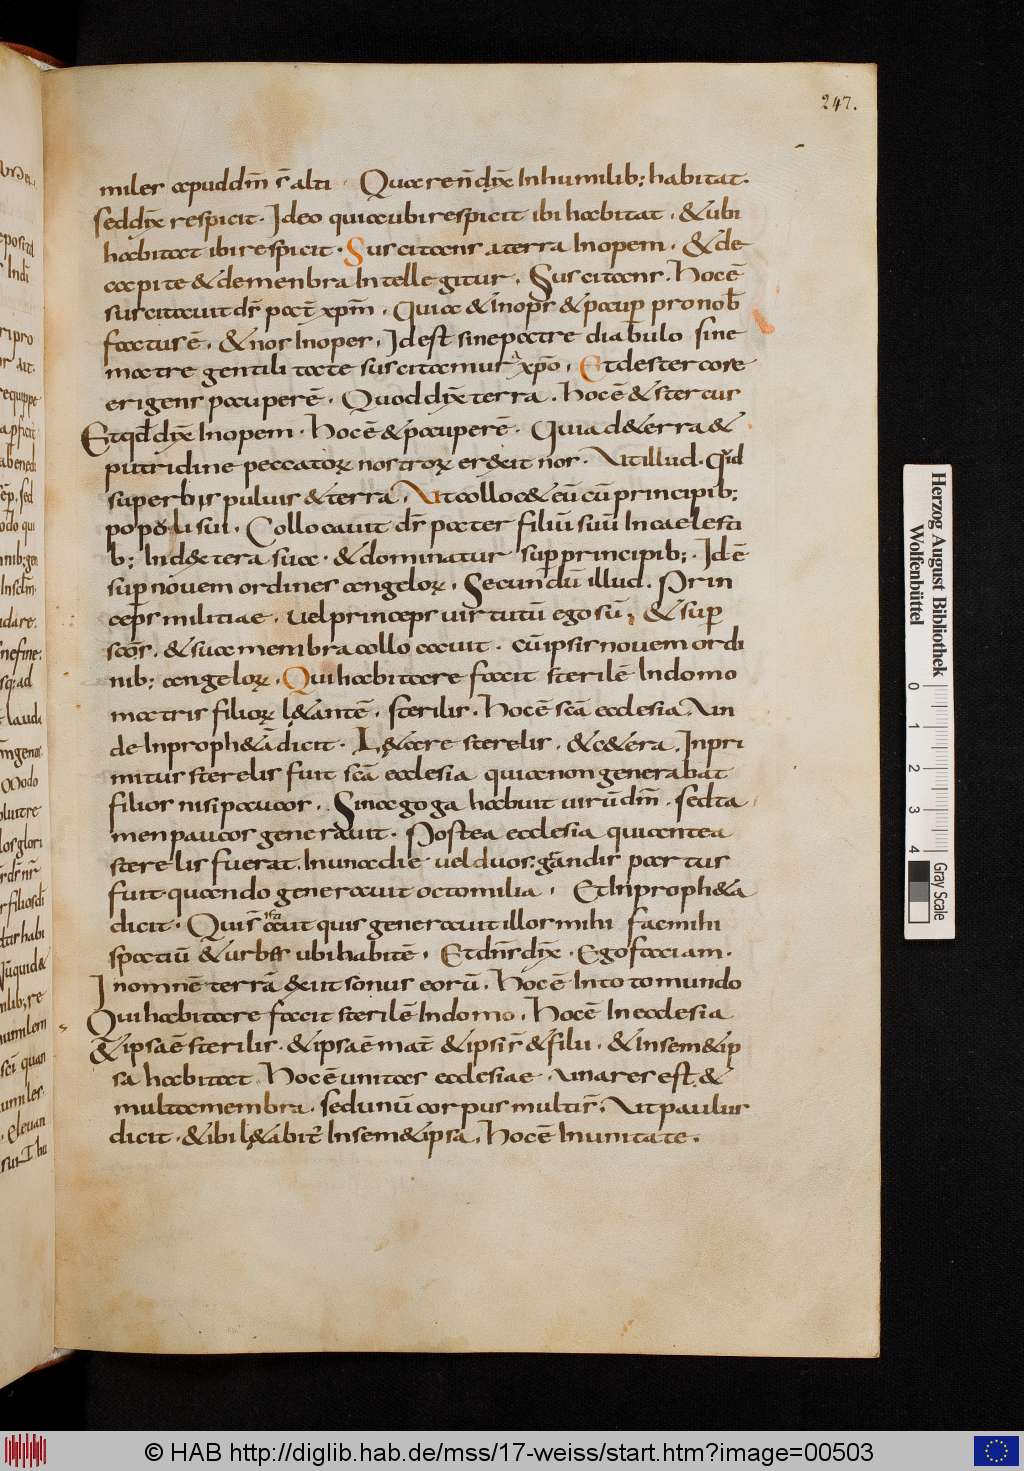 247.
miles apud dm̄ s̄ alti. Quare n̄ dix̄ In humilib; habitat.
sed dix̄ respicit. Ideo quia ubi respicit ibi habitat. & ubi
habitat ibi respicit. Suscitans a terra Inopem. & de
capite & de menbra Intellegitur. Suscitans. Hoc ē
suscitauit ds̄ pat̄ xpm̄. Quia & Inops & paup pro nob̄
factus ē. & nos Inopes. Id est sine patre diabulo sine
matre gentilitate suscitamur a xp̄o. Et de stercore
erigens pauperē. Quod dix̄ terra. Hoc ē & stercus
Et qd̄ dix̄ Inopem. Hoc ē & pauperē. Quia de terra &
putridine peccatorꝝ nostrorꝝ erexit nos. Ut illud. Quid
superbis puluis & terra. Ut collocet eū cū principib;
populi sui. Collocauit ds̄ pater filiū suū In caelesti
b; In dextera sua. & dominatur sup principib;. Id ē
sup nouem ordines angelorꝝ. Secundū illud. Prin
ceps militiae. uel princeps uirtutū ego sū, & sup
scōs. & sua membra collocauit. cū ipsis nouem ordi
nib; angelorꝝ. Qui habitare facit sterilē In domo
matris filiorꝝ lętantē. sterilis. Hoc ē scā ecclesia. Un
de In proph&ā dicit. Lętare sterelis. & c&era. In pri
mitus sterelis fuit scā ecclesia quia non generabat
filios nisi paucos. Sinagoga habuit uirū dm̄. sed ta
men paucos generauit. Postea ecclesia qui antea
sterelis fuerat. In una die uel duos. grandis partus
fuit quando generauit octo milia. Et In proph&a
dicit. Quis quis generauit illos mihi fac mihi
spatiū & urbes ubi habitē. Et dn̄s dix̄. Ego faciam.
In omnē terrā exiit sonus eorū. Hoc ē In toto mundo
Qui habitare facit sterilē In domo. Hoc ē In ecclesia
& ipsa ē sterilis. & ipsa ē mat̄ & ipsi s̄ & filii. & In sem&ip
sa habitat. Hoc ē unitas ecclesiae. Una res est &
multa membra. sed unū corpus multi s̄. Ut paulus
dicit. & ibi lętabit̄ In sem&ipsa. Hoc ē In unitate.
Herzog August Bibliothek
Wolfenbüttel
0 1 2 3 4
Gray Scale
© HAB http://diglib.hab.de/mss/17-weiss/start.htm?image=00503